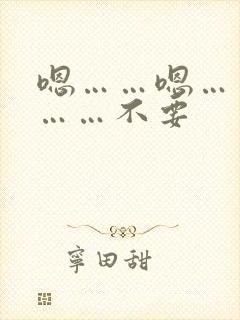 嗯……嗯…
……不要
寧田甜